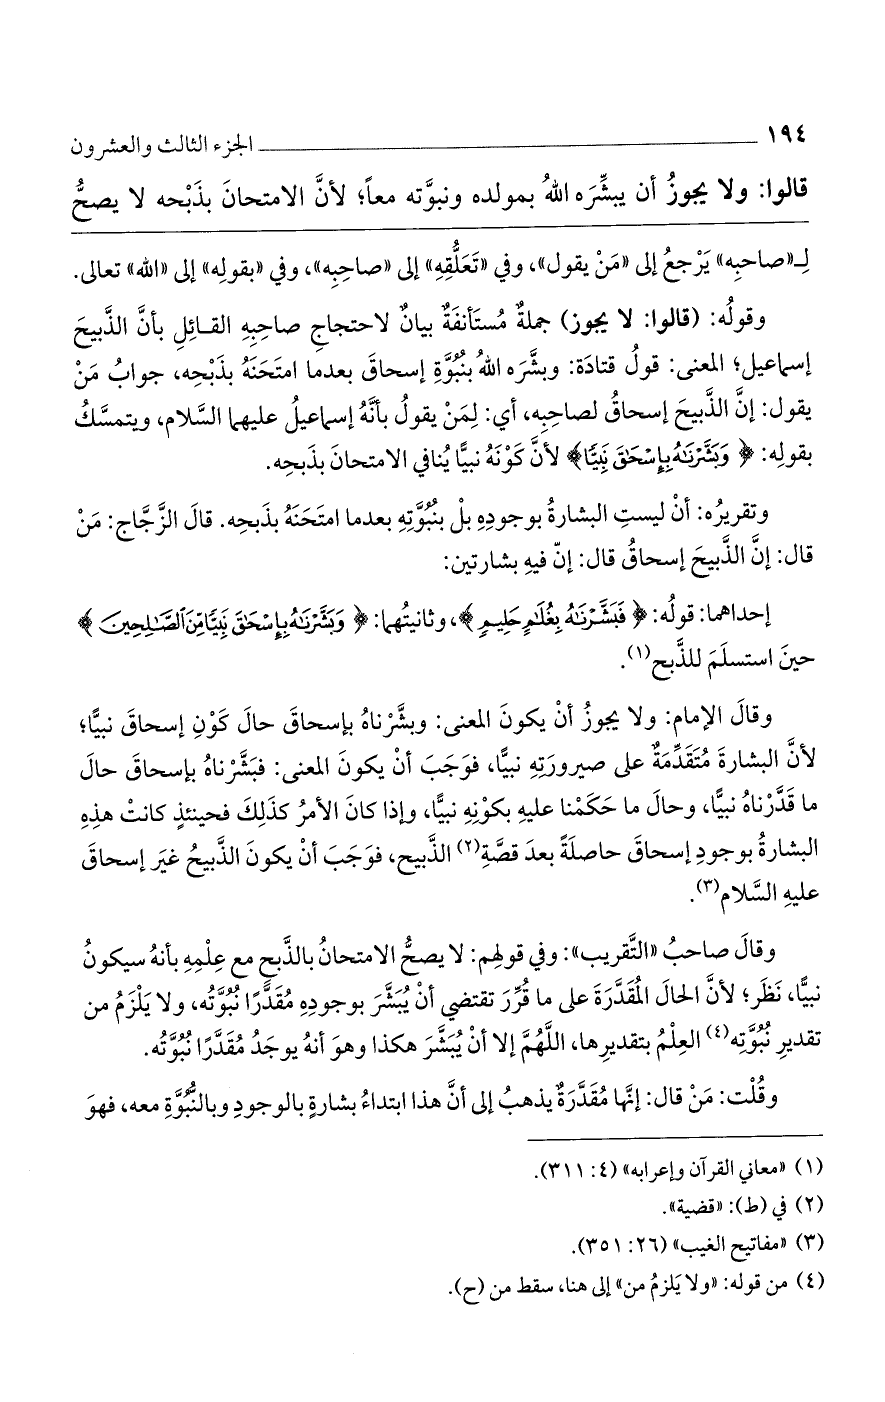 ١٩٤ ــــــــــــــــــــــــــــــــــــــــــــــــــــــــــــــــ الجزء الثالث والعشرون
قالوا: ولا يجوزُ أن يبشِّرَه اللهُ بمولده ونبوَّته معاً؛ لأنَّ الامتحانَ بذَبْحه لا يصحُّ
لِـ«صاحبِه» يَرْجعُ إلى «مَنْ يقول»، وفي «تَعَلُّقِهِ» إلى «صاحِبِه»، وفي «بقولِه» إلى «الله» تعالى.
وقولُه: (قالوا: لا يجوز) جملةٌ مُستَأنفَةٌ بيانٌ لاحتجاجِ صاحِبِهِ القائلِ بأنَّ الذَّبيحَ
إسماعيل؛ المعنى: قولُ قتادَة: وبشَّرَه اللهُ بنُبُوَّةِ إسحاقَ بعدما امتَحَنَهُ بذَبْحِه، جوابُ مَنْ
يقول: إنَّ الذَّبيحَ إسحاقُ لصاحِبِه، أي: لِمَنْ يقولُ بأنَّهُ إسماعيلُ عليهما السَّلام، ويتمسَّكُ
بقولِه: ﴿وَبَشَّرْنَاهُ بِإِسْحَاقَ نَبِيًّا﴾ لأنَّ كَوْنَهُ نبيًّا يُنافي الامتحانَ بذَبحِه.
وتقريرُه: أنْ ليستِ البشارةُ بوجودِهِ بلْ بنُبُوَّتِهِ بعدما امتَحَنَهُ بذَبحِه. قال الزَّجَّاج: مَنْ
قال: إنَّ الذَّبيحَ إسحاقُ قال: إنّ فيهِ بشارتين:
إحداهما: قولُه: ﴿فَبَشَّرْنَاهُ بِغُلَامٍ حَلِيمٍ﴾، وثانيتُهما: ﴿وَبَشَّرْنَاهُ بِإِسْحَاقَ نَبِيًّا مِّنَ الصَّالِحِينَ﴾
حينَ استسلَمَ للذَّبح(١).
وقالَ الإمام: ولا يجوزُ أنْ يكونَ المعنى: وبشَّرْناهُ بإسحاقَ حال كَوْنِ إسحاقَ نبيًّا؛
لأنَّ البشارةَ مُتَقَدِّمَةٌ على صيرورَتِهِ نبيًّا، فوَجَبَ أنْ يكونَ المعنى: فبَشَّرْناهُ بإسحاقَ حالَ
ما قَدَّرْناهُ نبيًّا، وحالَ ما حَكَمْنا عليهِ بكونِهِ نبيًّا، وإذا كانَ الأمرُ كذَلِكَ فحينئذٍ كانتْ هذِهِ
البشارةُ بوجودِ إسحاقَ حاصلَةً بعدَ قصَّةِ(٢) الذَّبيح، فوَجَبَ أنْ يكونَ الذَّبيحُ غيَر إسحاقَ
عليهِ السَّلام(٣).
وقالَ صاحبُ «التَّقريب»: وفي قولهِم: لا يصحُّ الامتحانُ بالذَّبحِ مع عِلْمِهِ بأنهُ سيكونُ
نبيًّا، نَظَر؛ لأنَّ الحالَ المُقَدَّرَةَ على ما قُرِّرَ تقتضي أنْ يُبَشَّرَ بوجودِهِ مُقَدَّرًا نُبُوَّتُه، ولا يَلْزَمُ من
تقديرِ نُبُوَّتِه(٤) العِلْمُ بتقديرِها، اللَّهُمَّ إلا أنْ يُبَشَّرَ هكذا وهوَ أنهُ يوجَدُ مُقَدَّرًا نُبُوَّتُه.
وقُلْت: مَنْ قال: إنَّها مُقَدَّرَةٌ يذهبُ إلى أنَّ هذا ابتداءُ بشارةٍ بالوجودِ وبالنُّبُوَّةِ معه، فهوَ
(١) «معاني القرآن وإعرابه» (٤: ٣١١).
(٢) في (ط): «قضية».
(٣) «مفاتيح الغيب» (٢٦: ٣٥١).
(٤) من قوله: «ولا يَلزمُ من» إلى هنا، سقط من (ح).